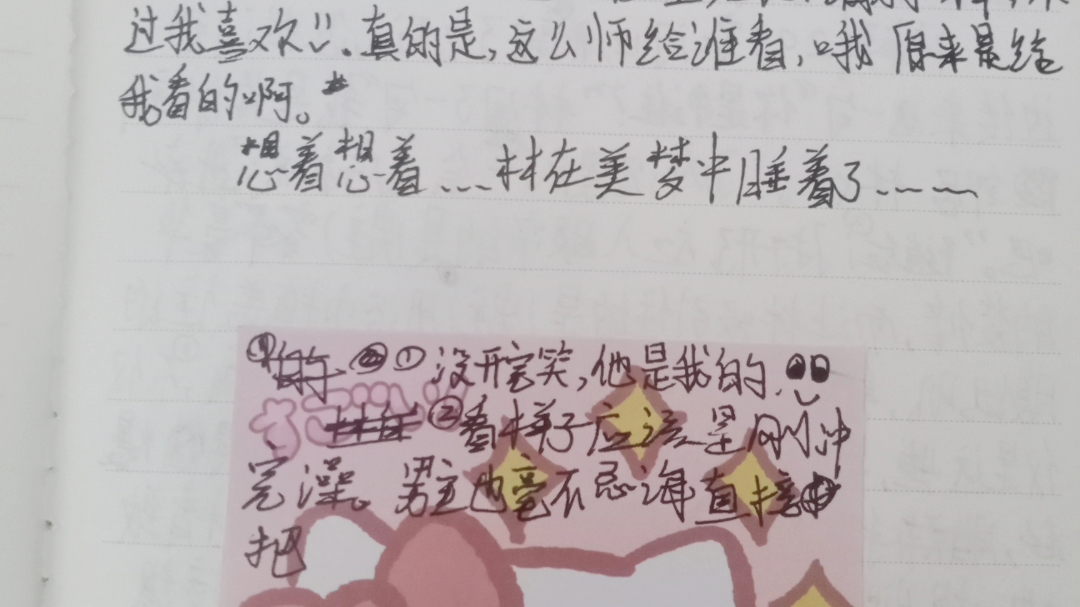 过我喜欢!!。真的是,这么师给谁看,哦 原来是给
我看的啊。
想着想着...林在美梦中睡着了……
① 没开完笑,他是我的.
②看样子应该是刚冲
完澡。男主也毫不忌诲直接
把